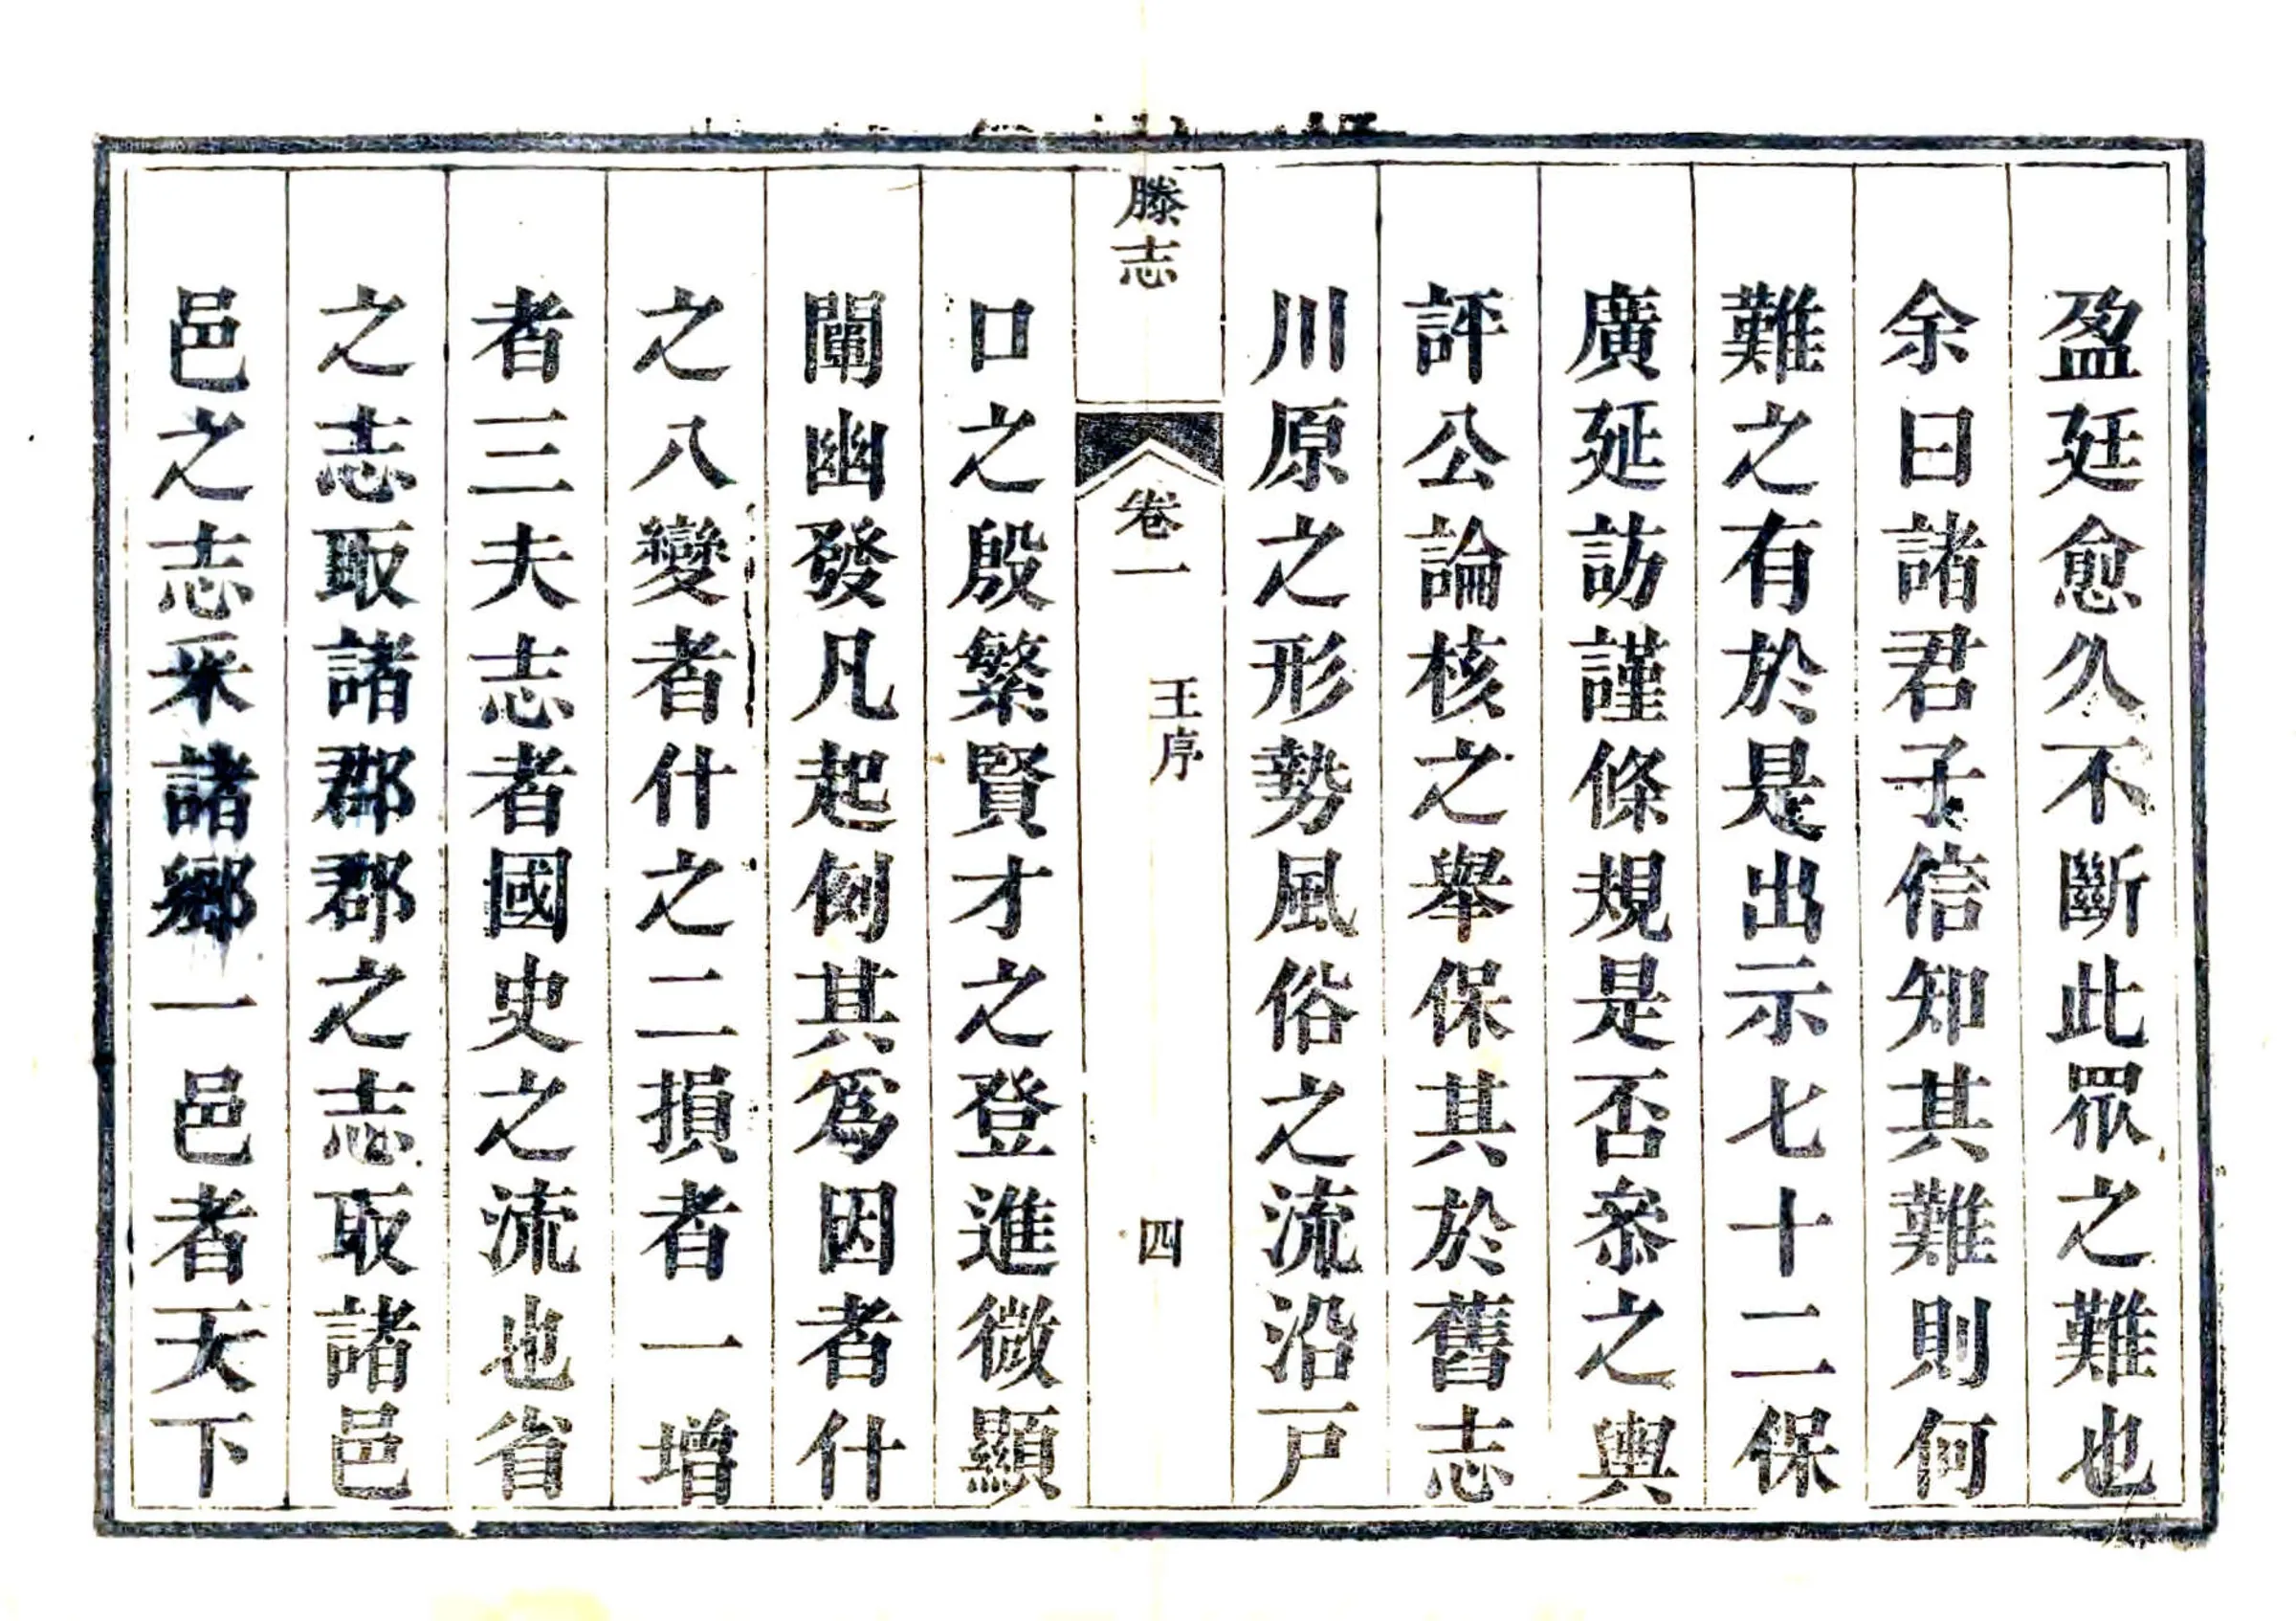 盈廷愈久不斷此眾之難也
余曰諸君子信知其難則何
難之有於是出示七十二保
廣延訪謹條規是否叅之輿
評公論核之舉保其於舊志
川原之形勢風俗之流沿戸
滕志
卷一
王序
四
口之殷繁賢才之登進微顯
闡幽發凡起例其爲因者什
之八變者什之二損者一增
者三夫志者國史之流也省
之志取諸郡郡之志取諸邑
邑之志采諸鄉一邑者天下